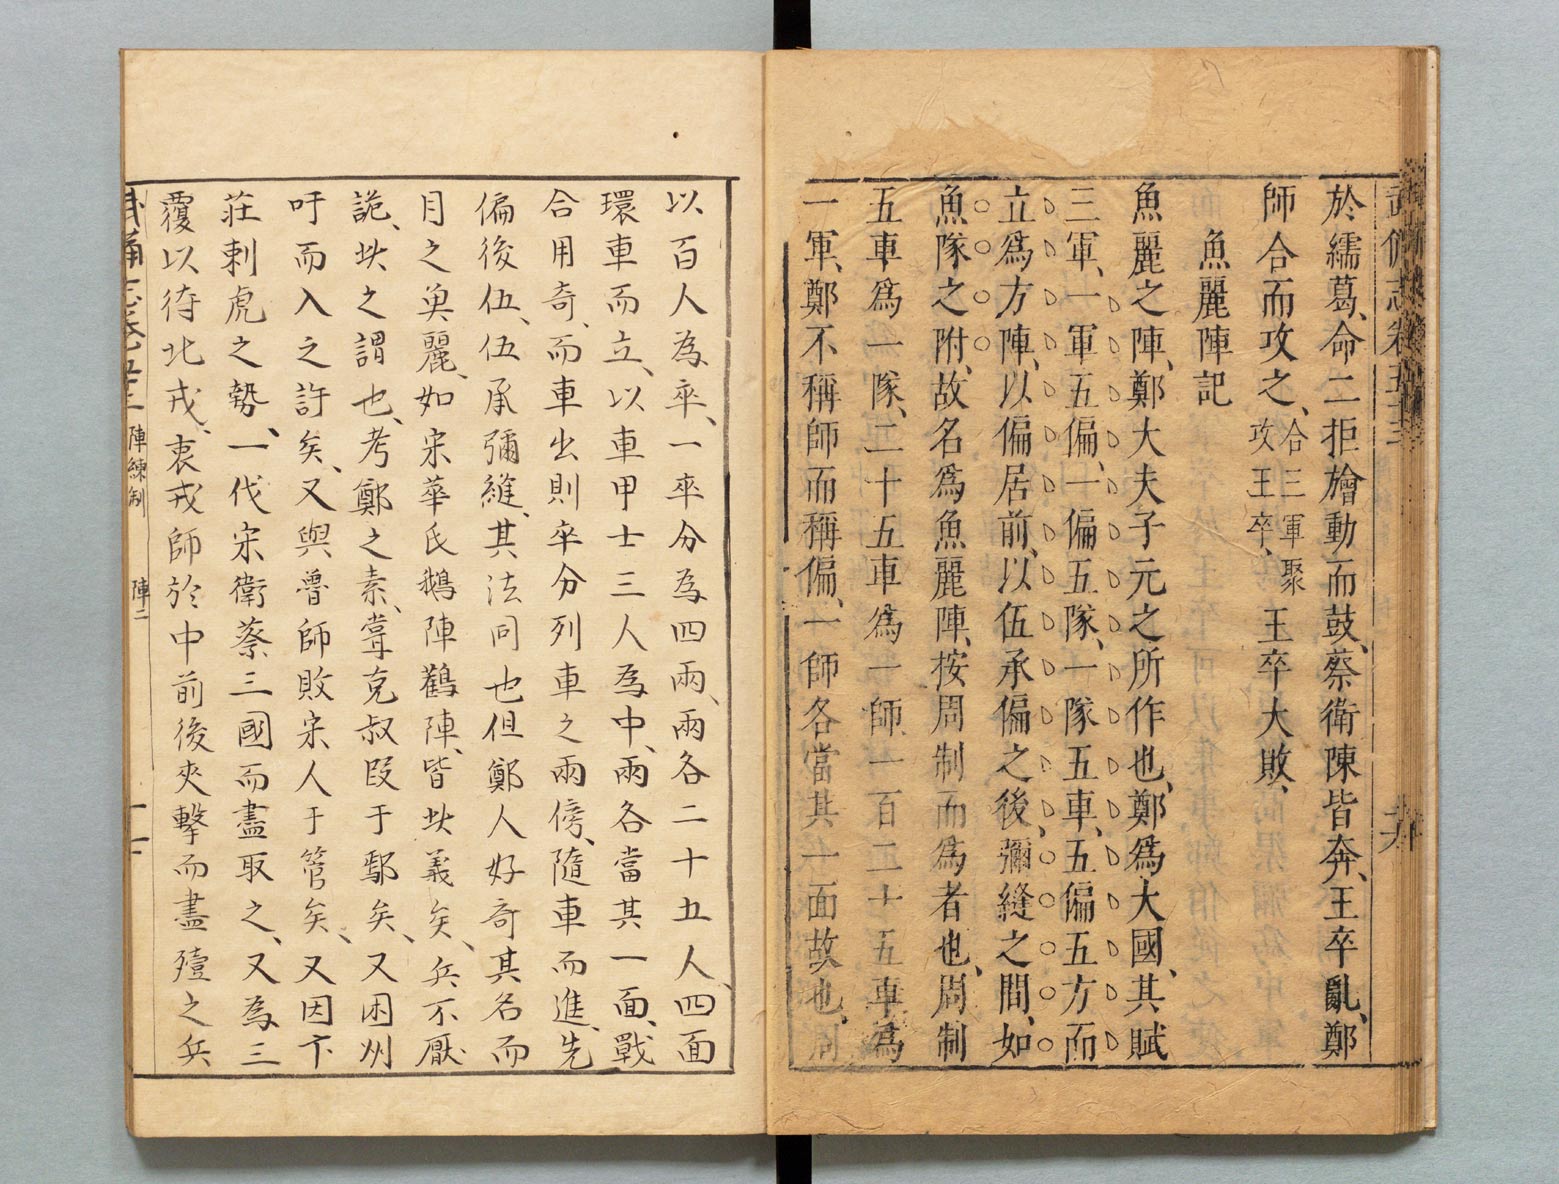 武備志卷五十三
於繻葛、命二拒旝動而鼓、蔡衛陳皆奔、王卒亂、鄭
師合而攻之、合三軍聚攻王卒、王卒大敗、
魚麗陣記
魚麗之陣、鄭大夫子元之所作也、鄭爲大國、其賦
三軍、一軍五偏、一偏五隊、一隊五車、五偏五方而
立爲方陣、以偏居前、以伍承偏之後、彌縫之間、如
魚隊之附、故名爲魚麗陣、按周制而爲者也、周制
五車爲一隊、二十五車爲一師、一百二十五車爲
一軍、鄭不稱師而稱偏、一師各當其一面故也、周
以百人為卒、一卒分為四兩、兩各二十五人、四面
環車而立、以車甲士三人為中、兩各當其一面、戰
合用奇、而車出則卒分列車之兩傍、隨車而進、先
偏後伍、伍承彌縫、其法同也但鄭人好奇其名而
目之奐麗、如宋華氏鵝陣鸛陣、皆此義矣、兵不厭
詭、此之謂也、考鄭之素、嘗克叔段于鄢矣、又困州
吁而入之許矣、又與魯師敗宋人于管矣、又因卞
莊刺虎之勢、一伐宋衛蔡三國而盡取之、又為三
覆以待北戎、衷戎師於中前後夾擊而盡殪之兵
陣練制
陣二